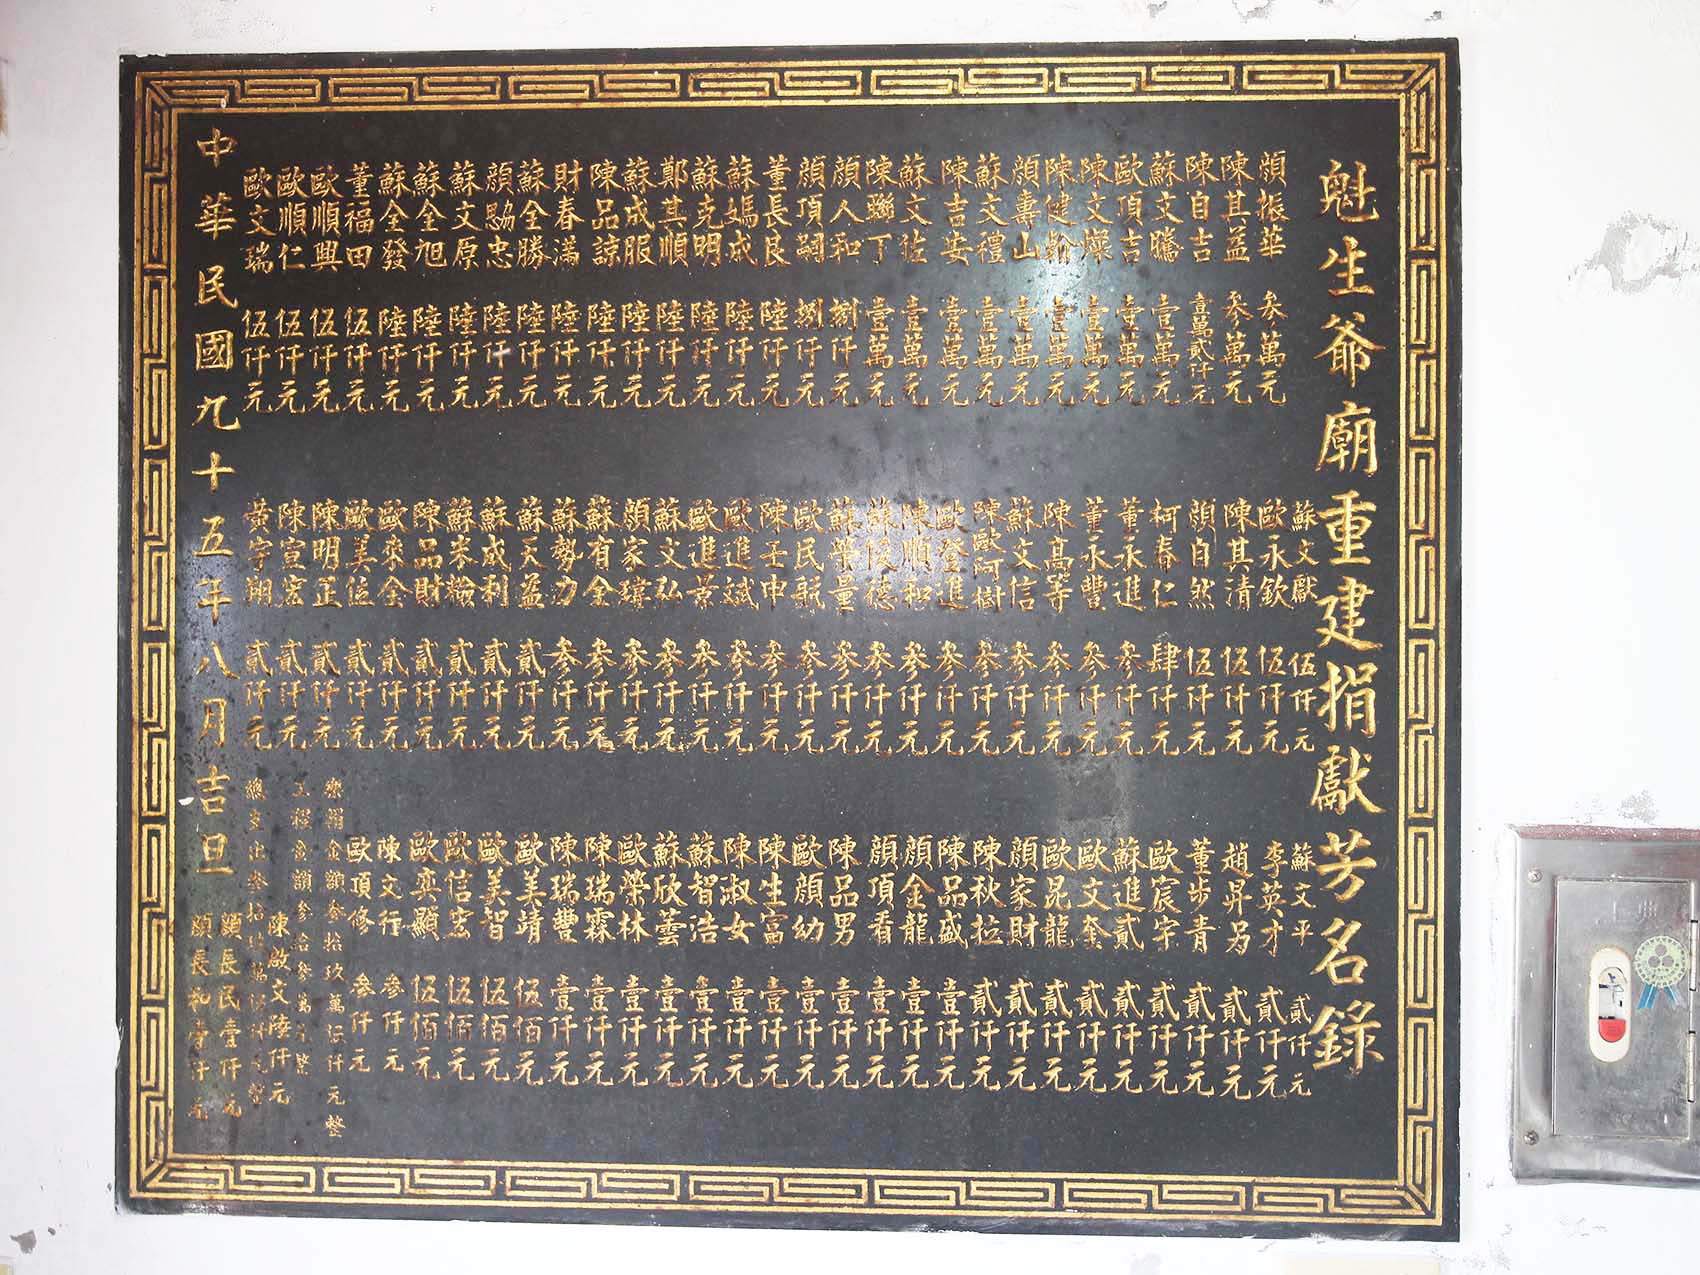 魁生爺廟重建捐獻芳名錄
顏振華 參萬元
陳其益 參萬元
陳自吉 壹萬貳仟元
蘇文騰 壹萬元
歐頂吉 壹萬元
陳文燦 壹萬元
陳健翰 壹萬元
顏壽山 壹萬元
蘇文禮 壹萬元
陳吉安 壹萬元
蘇文佐 壹萬元
陳聯丁 壹萬元
顏人和 捌仟元
顏頂嗣 捌仟元
董長良 陸仟元
蘇媽成 陸仟元
蘇克明 陸仟元
鄭其順 陸仟元
蘇成服 陸仟元
陳品諒 陸仟元
財春滿 陸仟元
蘇全勝 陸仟元
顏勰忠 陸仟元
蘇文原 陸仟元
蘇全旭 陸仟元
蘇全發 陸仟元
董福田 伍仟元
歐順興 伍仟元
歐順仁 伍仟元
歐文瑞 伍仟元
蘇文獻 伍仟元
歐永欽 伍仟元
陳其清 伍仟元
顏自然 伍仟元
柯春仁 肆仟元
董永進 參仟元
董永豐 參仟元
陳高等 參仟元
蘇文信 參仟元
陳歐阿樹 參仟元
歐登進 參仟元
陳順和 參仟元
蘇俊德 參仟元
蘇榮量 參仟元
歐民航 參仟元
陳壬申 參仟元
歐進斌 參仟元
歐進景 參仟元
蘇文弘 參仟元
顏家瑋 參仟元
蘇有金 參仟元
蘇勢力 參仟元
蘇天益 貳仟元
蘇成利 貳仟元
蘇岺檢 貳仟元
陳品財 貳仟元
歐來金 貳仟元
歐美位 貳仟元
陳明正 貳仟元
陳宣宏 貳仟元
黃宇翔 貳仟元
蘇文平 貳仟元
李英才 貳仟元
趙昇另 貳仟元
董步青 貳仟元
歐宸宇 貳仟元
蘇進貳 貳仟元
歐文奎 貳仟元
歐昆龍 貳仟元
顏家財 貳仟元
陳秋拉 貳仟元
陳品盛 壹仟元
顏金龍 壹仟元
顏頂看 壹仟元
陳品男 壹仟元
歐顏幼 壹仟元
陳生富 壹仟元
陳淑女 壹仟元
蘇智浩 壹仟元
蘇欣雲 壹仟元
歐榮林 壹仟元
陳瑞霖 壹仟元
陳瑞豐 壹仟元
歐美靖 伍佰元
歐美智 伍佰元
歐信宏 伍佰元
歐奕顯 伍佰元
陳文行 參仟元
歐頂修 參仟元
樂捐金額參拾玖萬伍仟元整
工程金額參拾
陳啟文陸仟元
顏長民壹仟元
顏長
中華民國九十五年八月吉旦